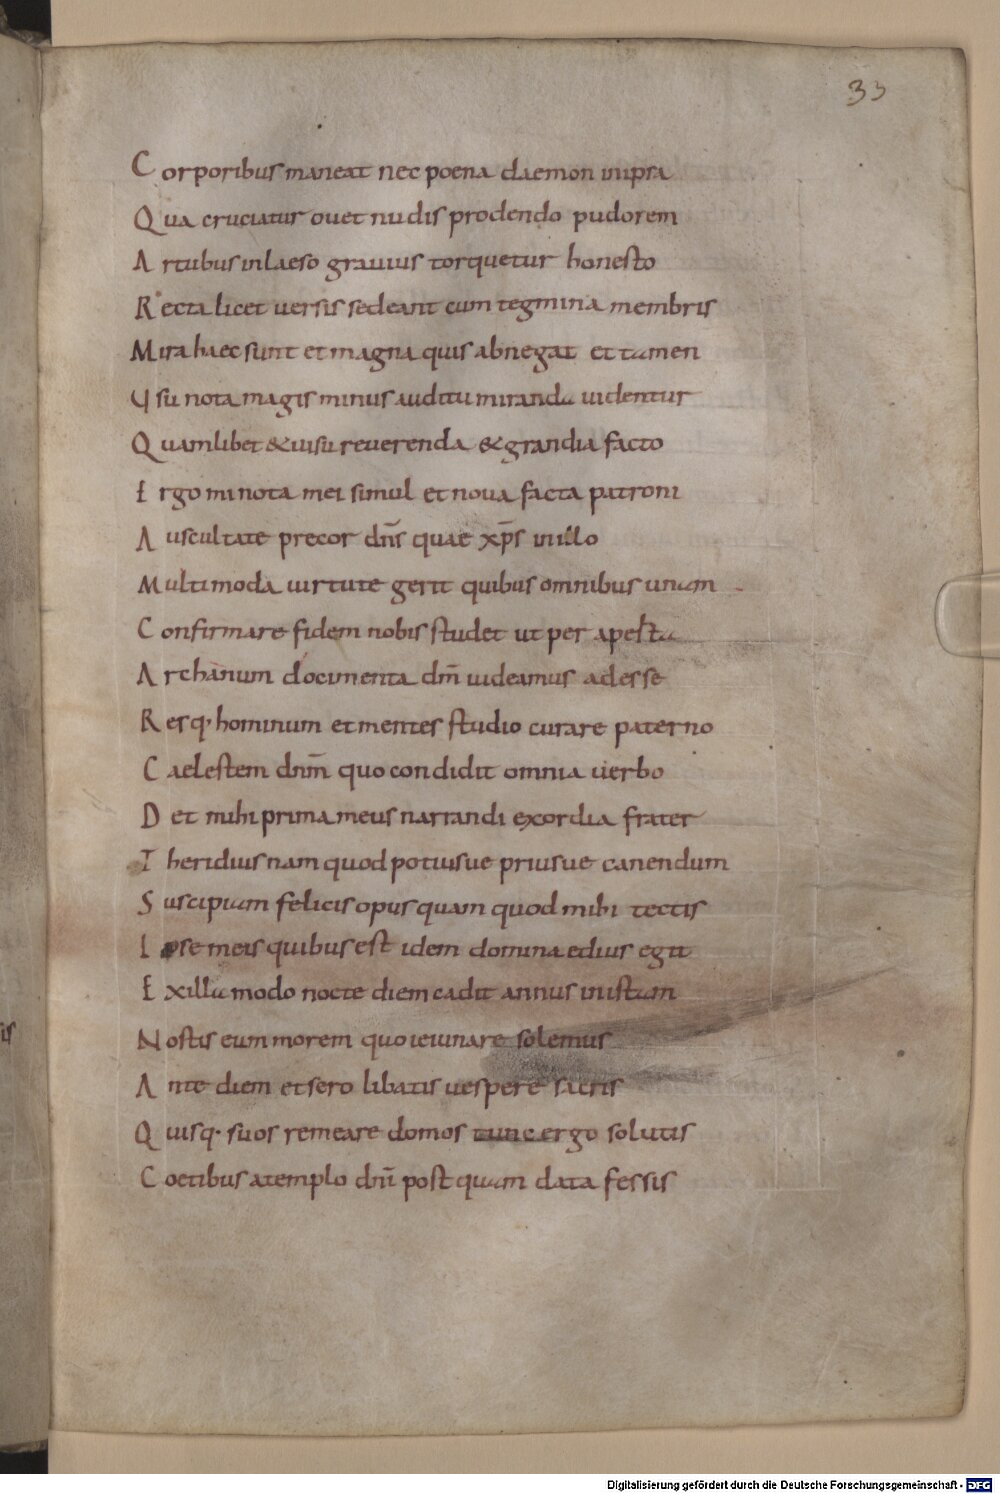 33
Corporibus maneat nec poena daemon inipsa
Qua cruciatur ouet nudis prodendo pudorem
Artubus inlaeso grauius torquetur honesto
Recta licet uersis sedeant cum tegmina membris
Mira haec sunt et magna quis abnegat et tamen
Usu nota magis minus auditu miranda uidentur
Quamlibet & uisu reuerenda & grandia facto
Ergo mi nota mei simul et noua facta patroni
Auscultate precor dn̄s quae xp̄s inillo
Multimoda uirtute gerit quibus omnibus unam
Confirmare fidem nobis studet ut per aperta
Archanum documenta dm̄ uideamus adesse
Resq· hominum et mentes studio curare paterno
Caelestem dnm̄ quo condidit omnia uerbo
Det mihi prima meus narrandi exordia frater
Theridius nam quod potius ue prius ue canendum
Suscipiam felicis opus quam quod mihi tectis
Ipse meis quibus est idem domina edius egit
Ex illa modo nocte diem cadit annus inistam
Nostis eum morem quo ieiunare solemus
Ante diem et sero libatis uespere sacris
Quisq· suos remeare domos tunc ergo solutis
Coetibus atemplo dnī post quam data fessis
is
Digitalisierung gefördert durch die Deutsche Forschungsgemeinschaft - DFG